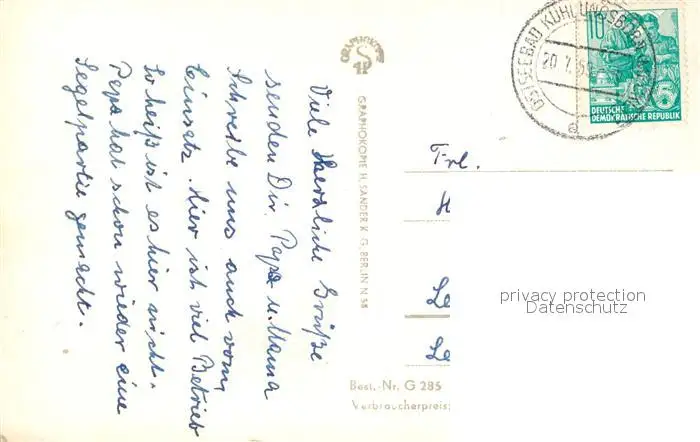 Viele Herzliche Grüße
senden Dir Papa u. Mama
Schreibe uns auch vom
Einsatz. Hier ist viel Betrieb
So heiß ist es hier nicht.
Papa hat schon wieder eine
Segelpartie gemacht.
GRAPHOKOPIE
GRAPHOKOPIE H. SANDER K. G. BERLIN N 58
OSTSEEBAD KÜHLUNGSBORN
20.7.5
a
10
5
DEUTSCHE
DEMOKRATISCHE REPUBLIK
Frl.
H
Le
Le
privacy protection
Datenschutz
Best.-Nr. G 285
Verbraucherpreis: